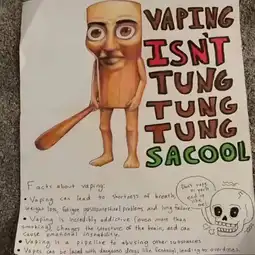 VAPING
ISN'T
TUNG
TUNG
TUNG
SACOOL
Facts about vaping:
• Vaping can lead to shortness of breath,
weight loss, fatigue, gastrointestinal problems, and lung failure
• Vaping is incredibly addictive (even more than
smoking), changes the structure of the brain, and can
cause emotional instability.
• Vaping is a pipeline to abusing other substances
• Vapes can be laced with dangerous drugs like fentanyl, leading to overdoses
Don't vape
or you'll
end up
like